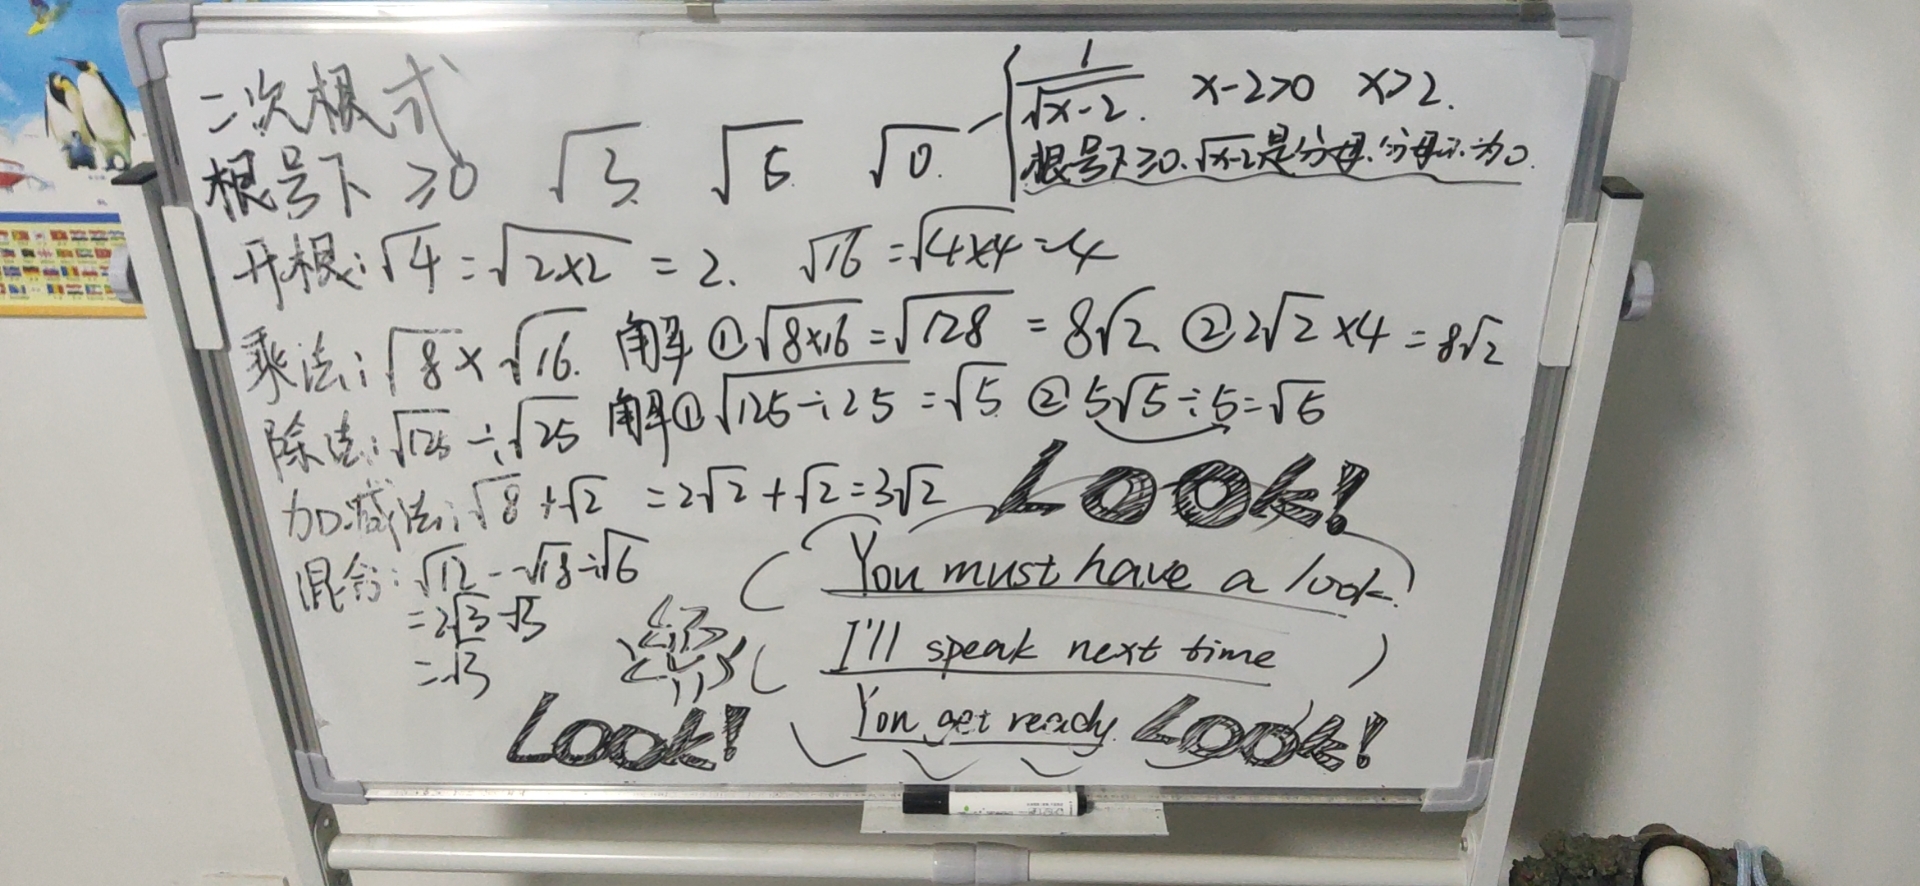 二次根式
根号下 ≥0 √3 √5 √0
1/√x-2. x-2>0 x>2.
根号下≥0.√x-2是分母.分母不为0.
开根:√4=√2×2 =2. √16=√4×4=4
乘法:√8×√16. 解①√8×16=√128=8√2 ②2√2×4=8√2
除法:√125÷√25 解①√125÷25=√5 ②5√5÷5=√5
加减法:√8+√2 =2√2+√2=3√2
LOOK!
混合:√12-√18÷√6
=2√3-√3
=√3
You must have a look.
I'll speak next time
You get ready
LOOK!
LOOK!